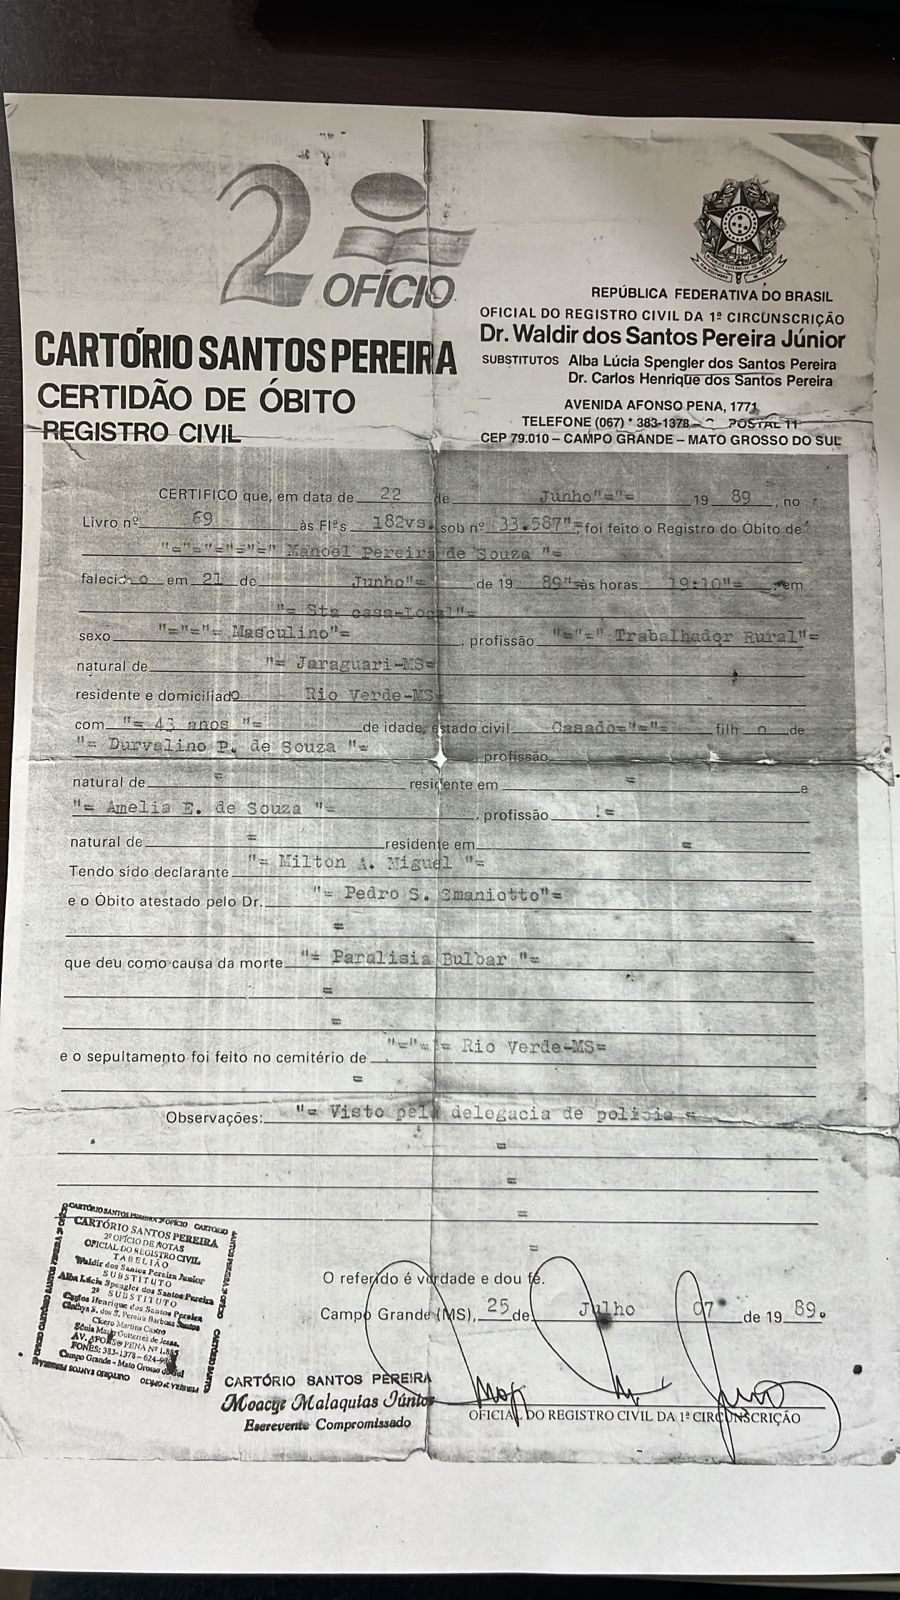 2 OFÍCIO
CARTÓRIO SANTOS PEREIRA
CERTIDÃO DE ÓBITO
REGISTRO CIVIL
REPÚBLICA FEDERATIVA DO BRASIL
OFICIAL DO REGISTRO CIVIL DA 1ª CIRCUNSCRIÇÃO
Dr. Waldir dos Santos Pereira Júnior
SUBSTITUTOS Alba Lúcia Spengler dos Santos Pereira
Dr. Carlos Henrique dos Santos Pereira
AVENIDA AFONSO PENA, 1771
TELEFONE (067) * 383-1378 – POSTAL 11
CEP 79.010 – CAMPO GRANDE – MATO GROSSO DO SUL
CERTIFICO que, em data de 22 de Junho"="= 19 89, no
Livro nº 69 às Flªs 182vs. sob nº 33.587"=, foi feito o Registro do Óbito de
"="="="="=" Manoel Pereira de Souza "=
falecido em 21 de Junho"= de 19 89"= às horas 19:10"=, em
"= Sta casa-Local"=
sexo "="="= Masculino"=, profissão "="=" Trabalhador Rural"=
natural de "= Jaraguari-MS=
residente e domiciliado Rio Verde-MS
com "= 43 anos "= de idade, estado civil Casado="="= filh o de
"= Durvalino P. de Souza "=, profissão
natural de = residente em = e
"= Amelia E. de Souza "=, profissão !=
natural de = residente em =
Tendo sido declarante "= Milton A. Miguel "=
e o Óbito atestado pelo Dr. "= Pedro S. Smaniotto"=
=
que deu como causa da morte "= Paralisia Bulbar "=
=
=
e o sepultamento foi feito no cemitério de "="= Rio Verde-MS=
=
Observações: "= Visto pela delegacia de policia =
=
=
=
=
O referido é verdade e dou fé.
Campo Grande (MS), 25 de Julho 07 de 19 89.
CARTÓRIO SANTOS PEREIRA
2º OFÍCIO DE NOTAS
OFICIAL DO REGISTRO CIVIL
TABELIÃO
Waldir dos Santos Pereira Junior
SUBSTITUTO
Alba Lúcia Spengler dos Santos Pereira
2º SUBSTITUTO
Carlos Henrique dos Santos Pereira
Cicero Martins Castro
AV. AFONSO PENA Nº 1.885
FONES: 383-1378 – 624-
Campo Grande - Mato Grosso do Sul
CARTÓRIO SANTOS PEREIRA
Moacyr Malaquias Júnior
Escrevente Compromissado
OFICIAL DO REGISTRO CIVIL DA 1ª CIRCUNSCRIÇÃO